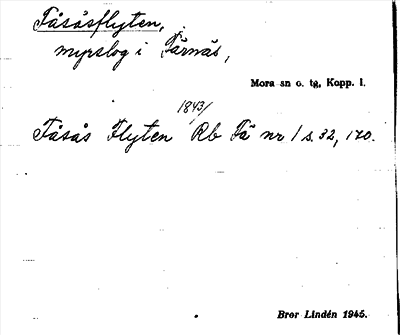 Fåsåsflyten,
myrslog i Färnäs,
Mora sn o. tg, Kopp. l.
1843/
Fåsås Flyten Rb Fä nr 1 s. 32, 170.
Bror Lindén 1945.